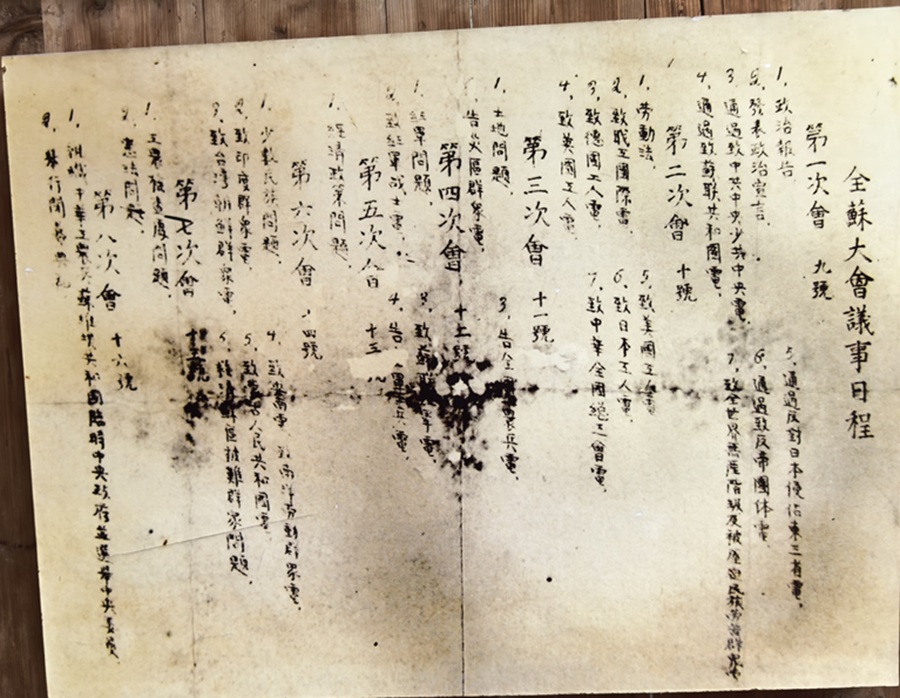 全蘇大會議事日程
第一次會 九號
1、政治報告
2、發表政治宣言、
3、通過致中共中央少共中央電、
4、通過致蘇联共和國電、
5、通過反對日本侵佔東三省電、
6、通過致反帝團体電、
7、致全世界無產階級及被壓迫民族勞苦群衆電
第二次會 十號
1、勞動法、
2、致職工國際電、
3、致德國工人電、
4、致英國工人電、
5、致美國工人電
6、致日本工人電、
7、致中华全國總工會電、
第三次會 十一號
1、土地問題、
告災區群衆電、
3、告全
兵電、
第四次會、十二號
1、紅軍問題、
2、致紅軍战士電、
3、致蘇联
軍電、
4、告
兵電、
第五次會 十三
1、經济政策問題、
第六次會 四號
1、少數民族問題、
2、致印度群衆電、
3、致台灣朝鮮群衆電、
4、致
電 致南洋劳動群衆電、
5、致蒙古人民共和國電
6、
區被難群衆問題、
第七次會
1、工農檢查處問題、
2、憲法問題、
第八次會 十六號
1、
中華工農兵蘇維埃共和國臨時中央政府並選舉中央委員、
2、舉行閉幕典礼